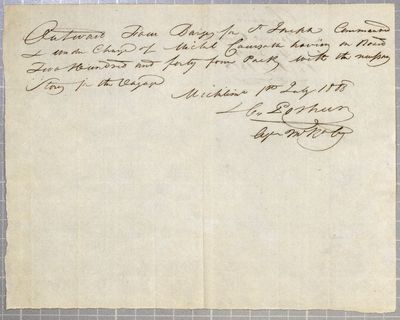 Outward Four Barges for St Joseph Command
& under Charge of Michel Coursolle having on Board
Two Hundred and forty four Packs with the necessary
Stores for the Voyage
Michilinac 1st July 18
Agen